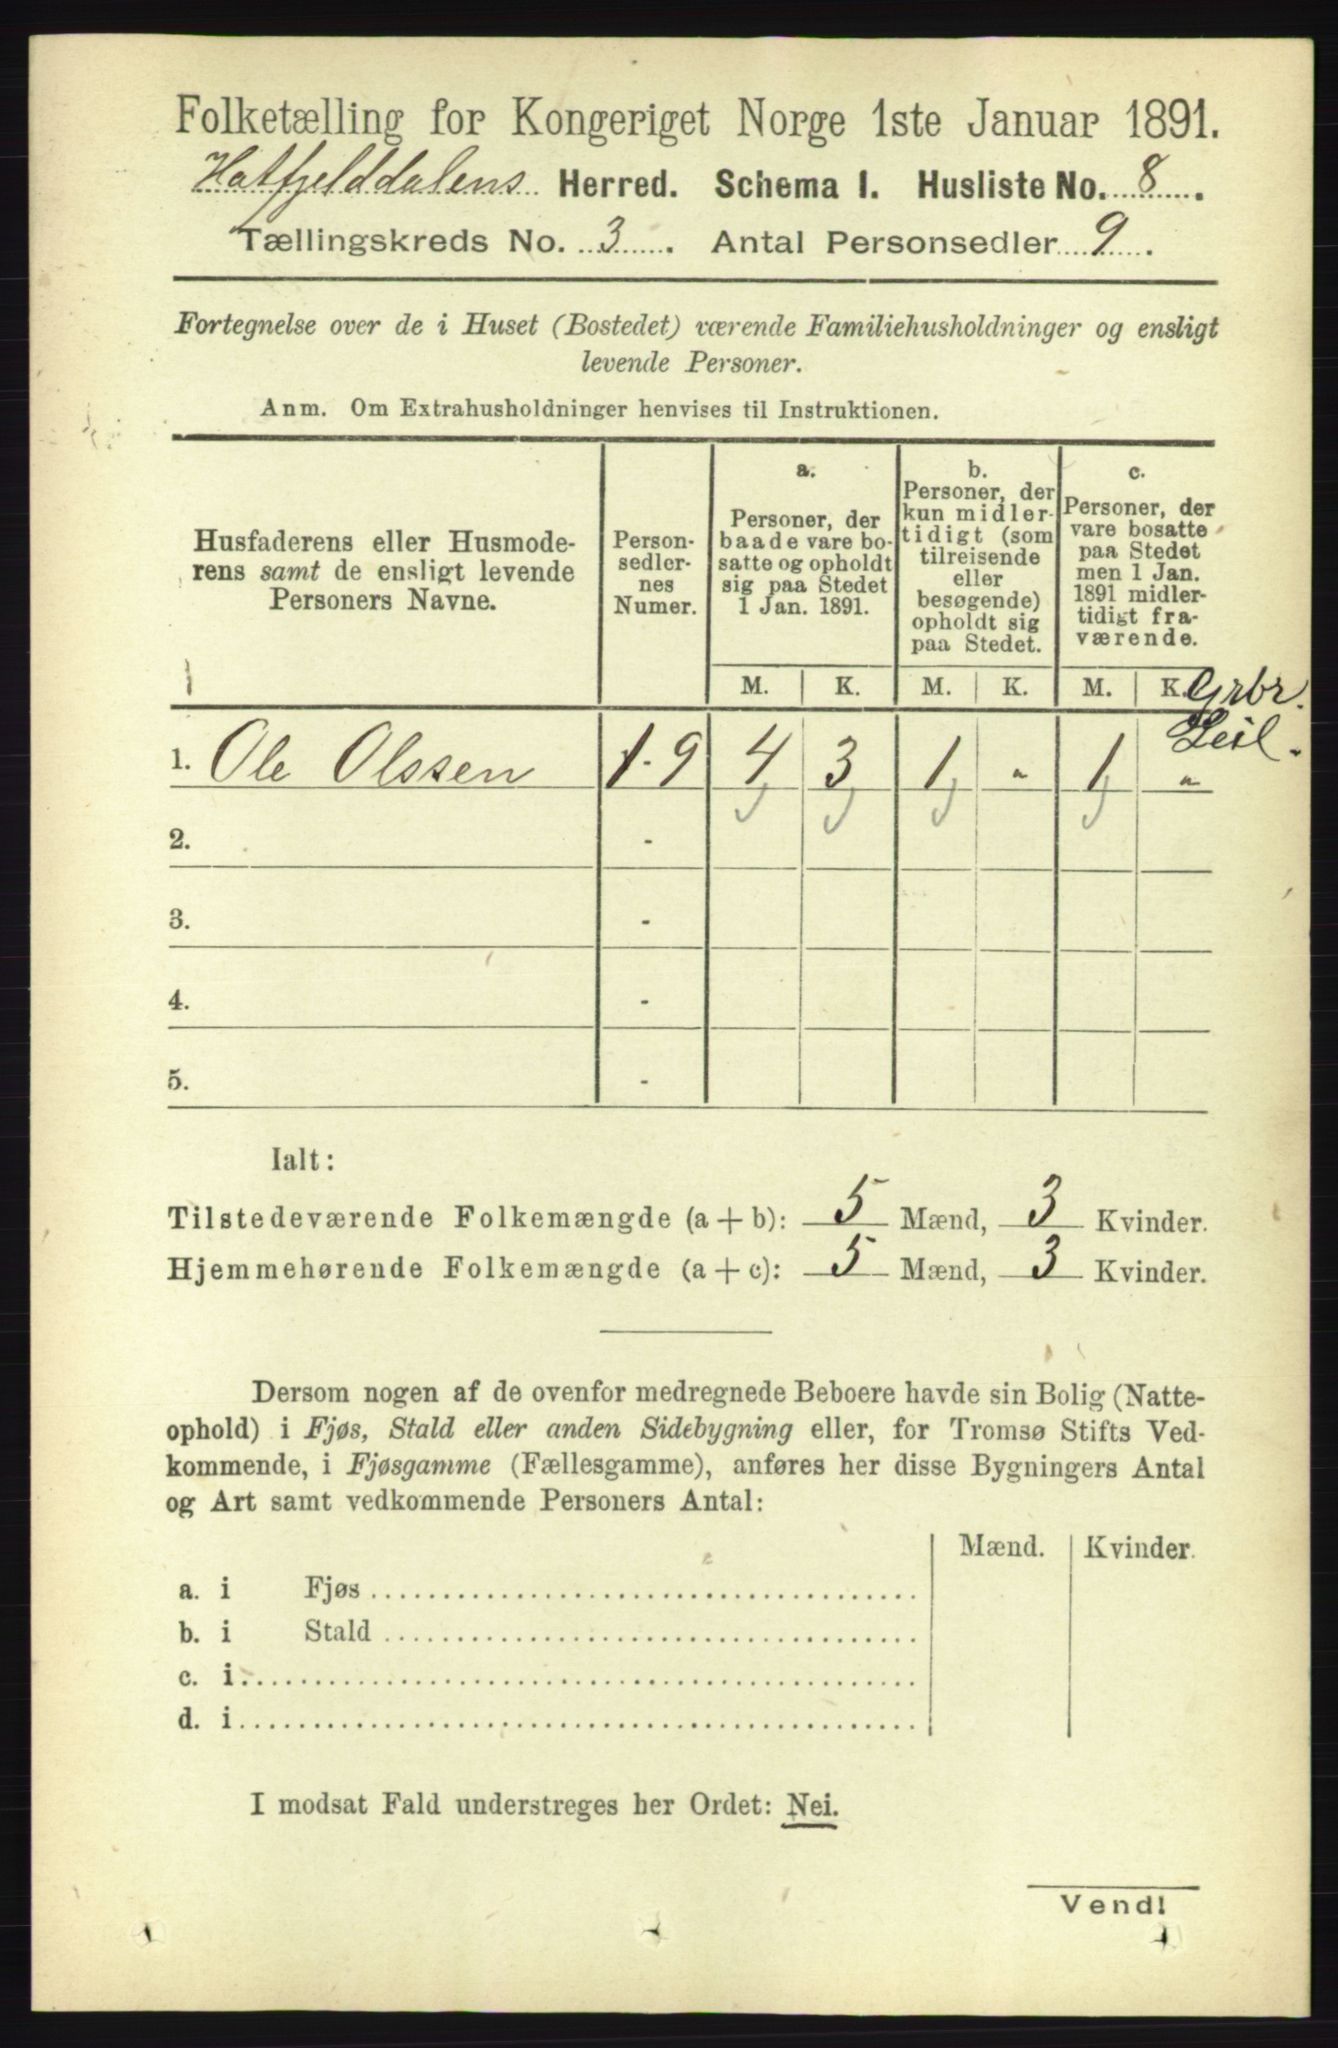 Folketælling for Kongeriget Norge 1ste Januar 1891.
Hatfjelddalens Herred. Schema I. Husliste No. 8.
Tællingskreds No. 3. Antal Personsedler 9.
Fortegnelse over de i Huset (Bostedet) værende Familiehusholdninger og ensligt
levende Personer.
Anm. Om Extrahusholdninger henvises til Instruktionen.
Husfaderens eller Husmode-
rens samt de ensligt levende
Personers Navne.
Person-
sedler-
nes
Numer.
a.
Personer, der
baade vare bo-
satte og opholdt
sig paa Stedet
1 Jan. 1891.
b.
Personer, der
kun midler-
tidigt (som
tilreisende
eller
besøgende)
opholdt sig
paa Stedet.
c.
Personer, der
vare bosatte
paa Stedet
men 1 Jan.
1891 midler-
tidigt fra-
værende.
M. K. M. K. M. K.
Grbr.
Leil.
1. Ole Olssen 1-9 4 3 1 " 1 "
2. -
3. -
4. -
5. -
Ialt:
Tilstedeværende Folkemængde (a + b): 5 Mænd, 3 Kvinder.
Hjemmehørende Folkemængde (a + c): 5 Mænd, 3 Kvinder.
Dersom nogen af de ovenfor medregnede Beboere havde sin Bolig (Natte-
ophold) i Fjøs, Stald eller anden Sidebygning eller, for Tromsø Stifts Ved-
kommende, i Fjøsgamme (Fællesgamme), anføres her disse Bygningers Antal
og Art samt vedkommende Personers Antal:
Mænd. Kvinder.
a. i Fjøs
b. i Stald
c. i
d. i
I modsat Fald understreges her Ordet: Nei.
Vend!